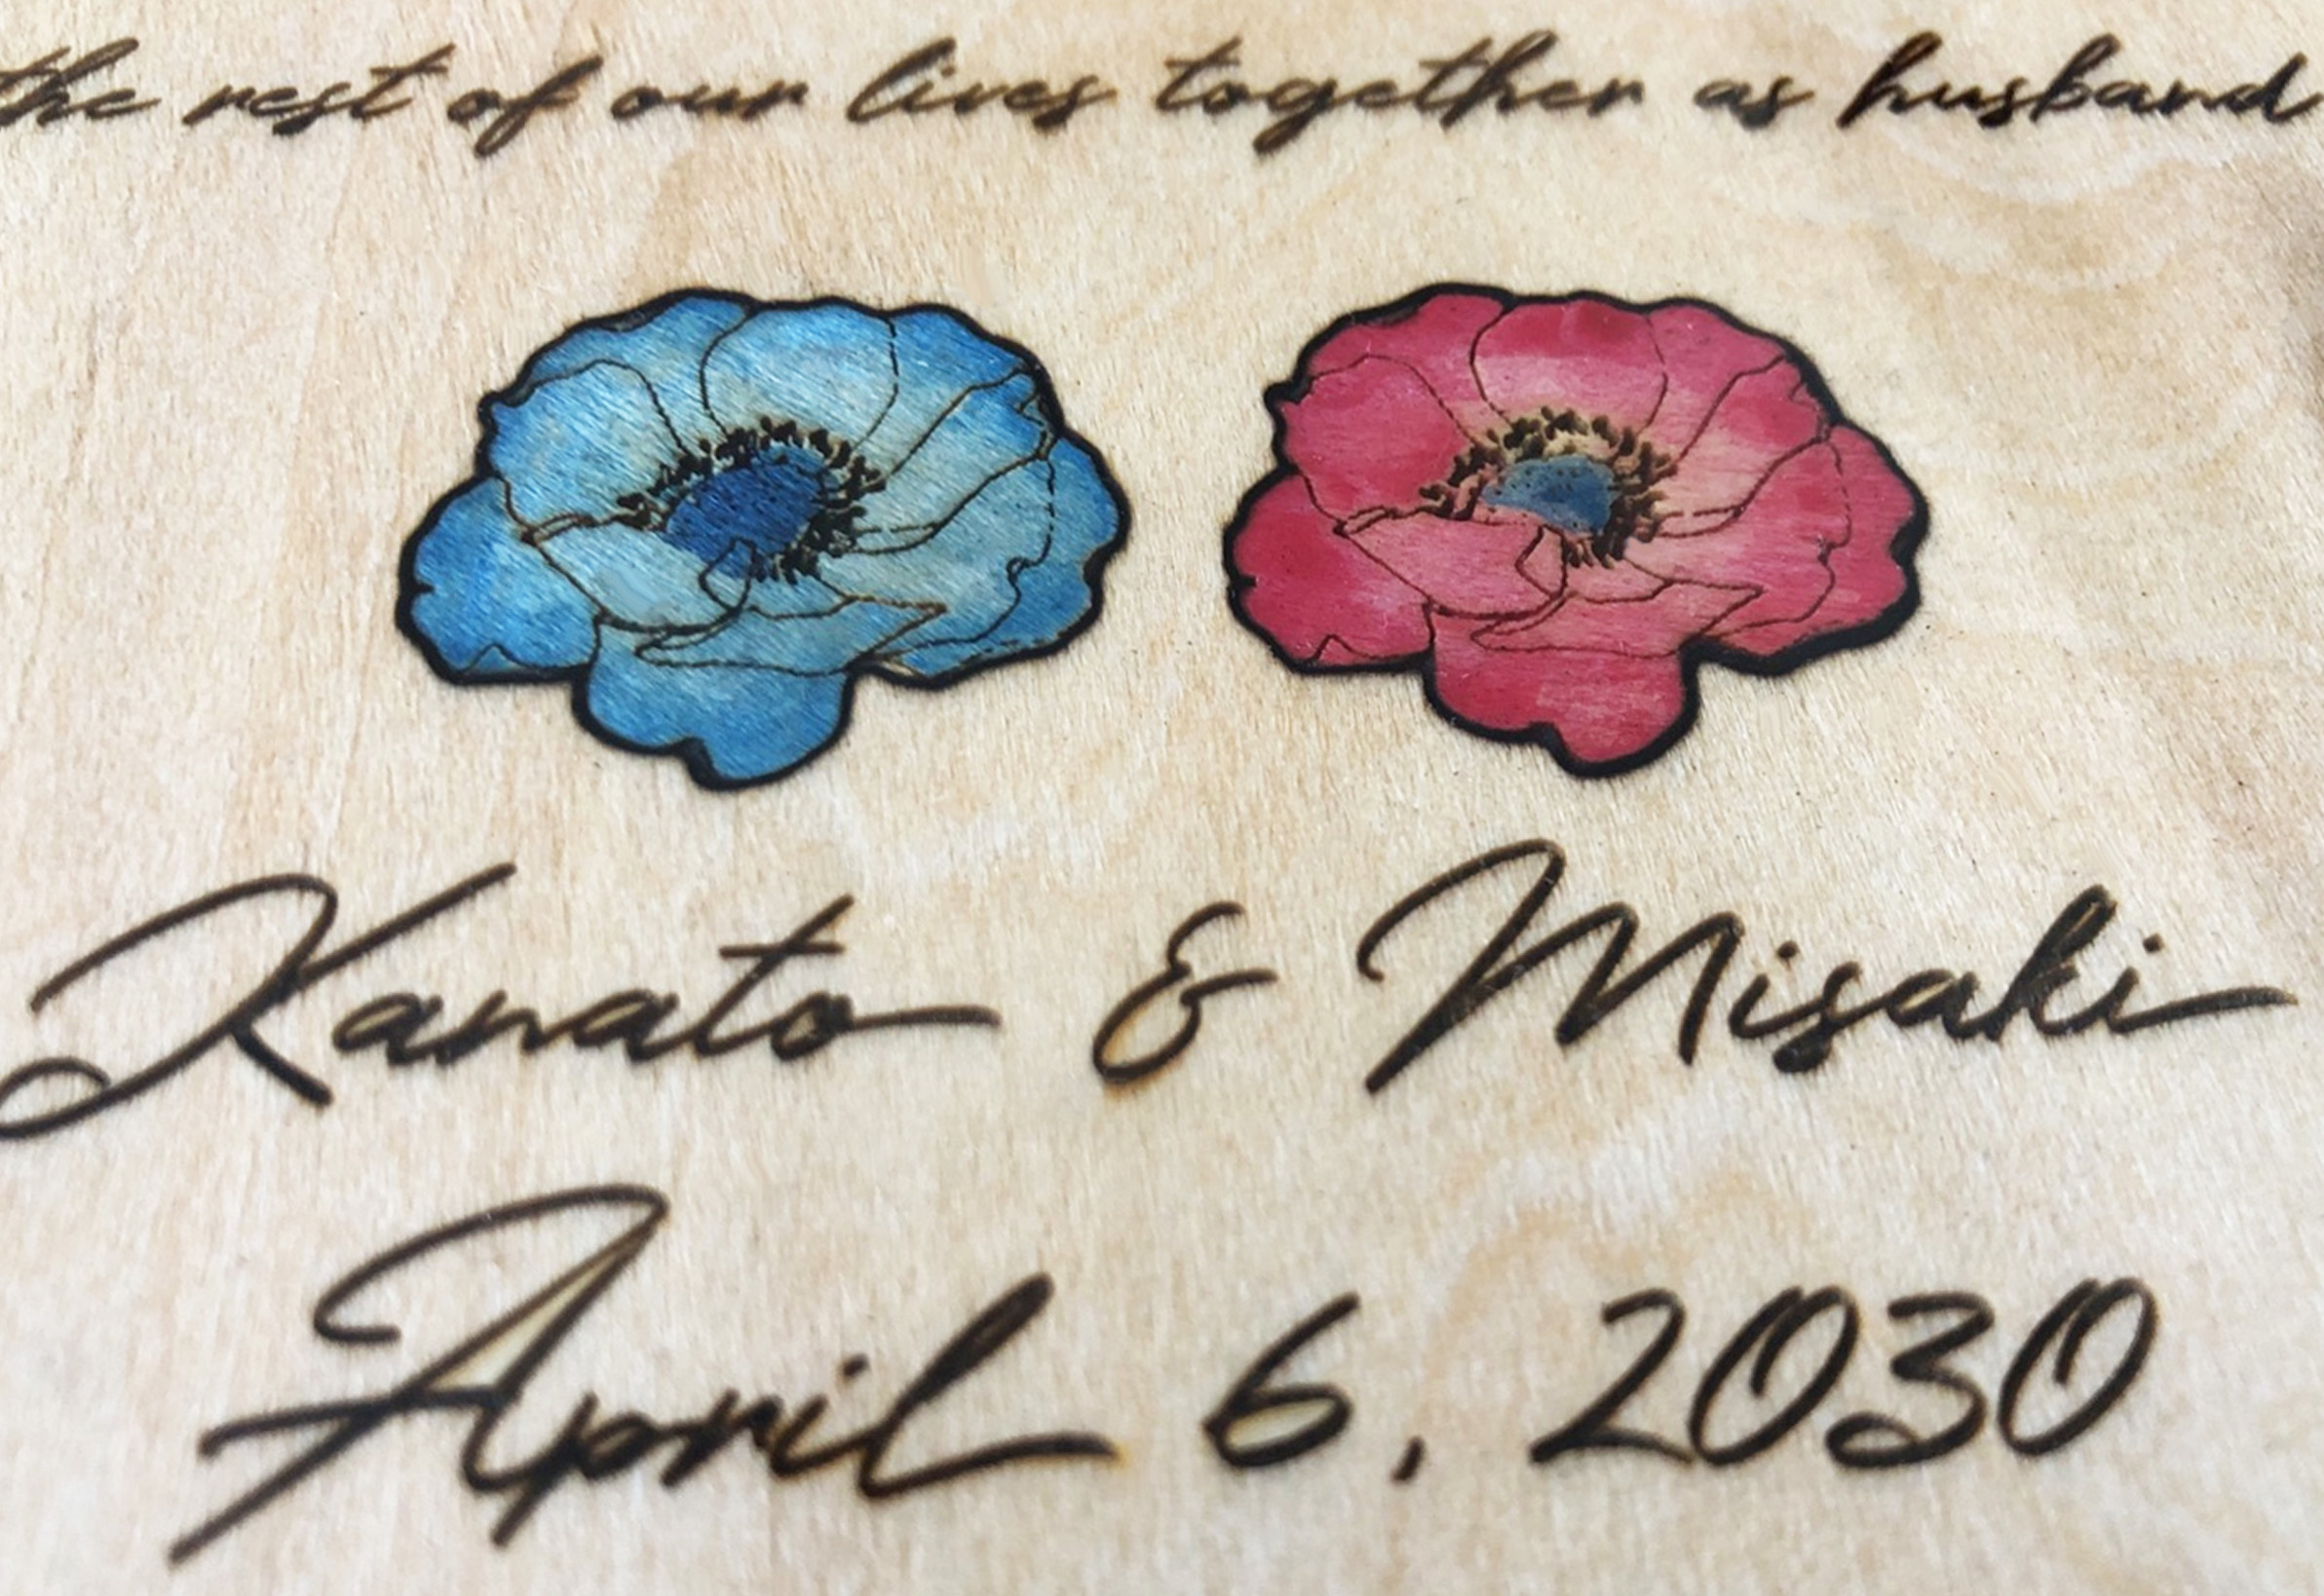 the rest of our lives together as husband
Kanato & Misaki
April 6, 2030